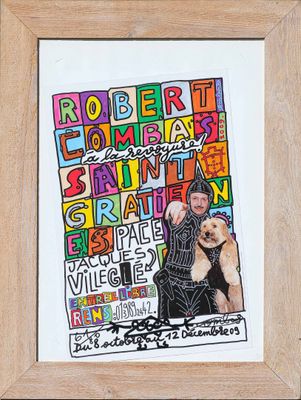 ROBERT
COMBAS
à la revoyure!
SAINT
GRATIEN
ESPACE
JACQUES
VILLEGLÉ
ENTRÉE LIBRE
RENS:
Du 8 octobre au 12 Décembre 09